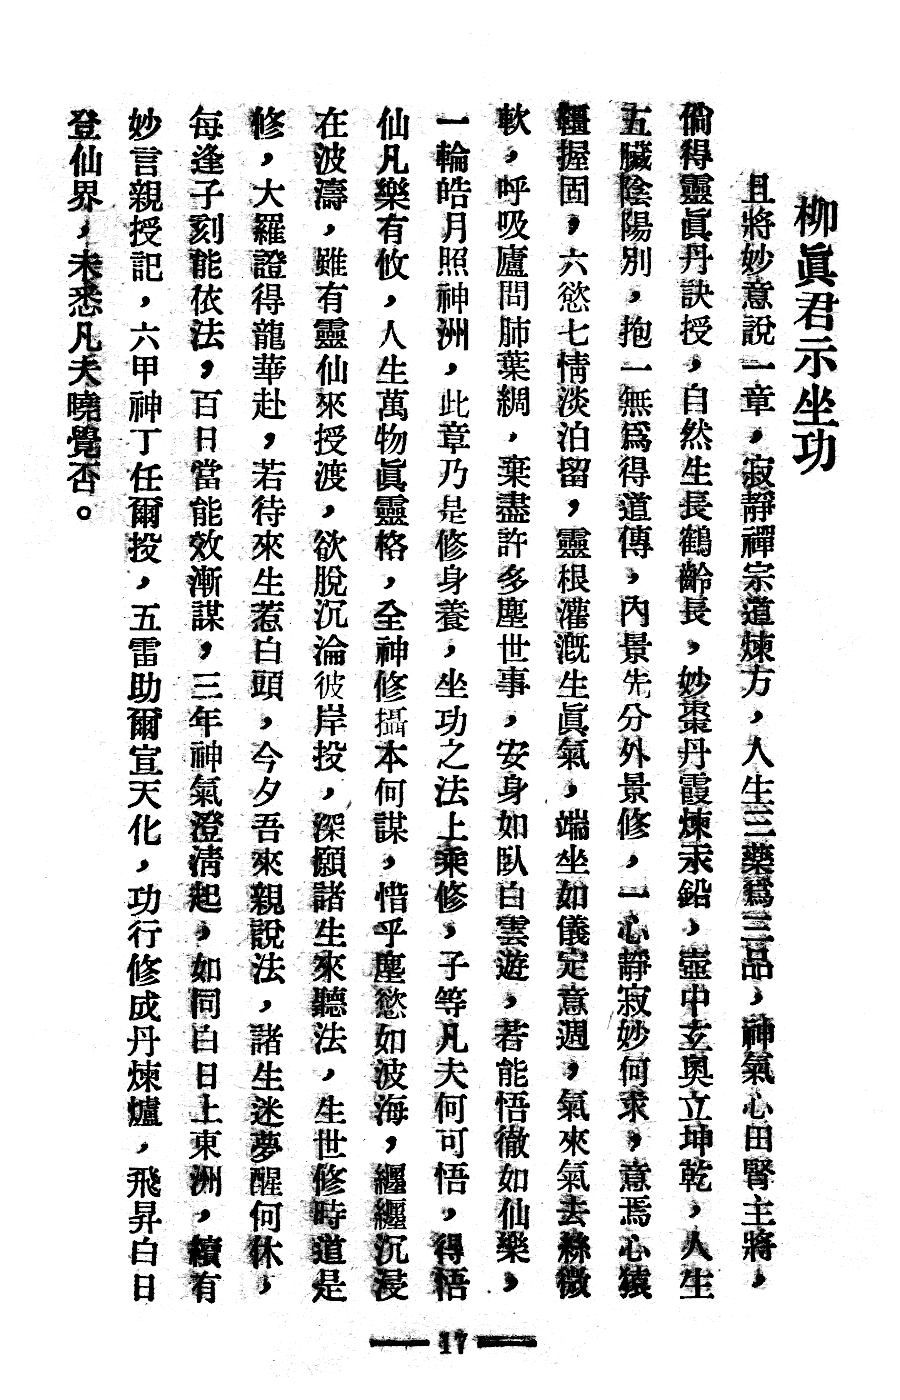 柳眞君示坐功
且將妙意說一章，寂靜禪宗道煉方，人生三藥爲三品，神氣心田腎主將，
倘得靈眞丹訣授，自然生長鶴齡長，妙棗丹霞煉汞鉛，壺中玄奧立坤乾，人生
五臟陰陽別，抱一無爲得道傳，內景先分外景修，一心靜寂妙何求，意馬心猿
韁握固，六慾七情淡泊留，靈根灌漑生眞氣，端坐如儀定意週，氣來氣去綿微
軟，呼吸廬問肺葉綢，棄盡許多塵世事，安身如臥白雲遊，若能悟徹如仙樂，
一輪皓月照神洲，此章乃是修身養，坐功之法上乘修，子等凡夫何可悟，得悟
仙凡樂有攸，人生萬物眞靈格，全神修攝本何謀，惜乎塵慾如波海，纒纒沉浸
在波濤，雖有靈仙來授渡，欲脫沉淪彼岸投，深願諸生來聽法，生世修時道是
修，大羅證得龍華赴，若待來生惹白頭，今夕吾來親說法，諸生迷夢醒何休，
每逢子刻能依法，百日當能效漸謀，三年神氣澄清起，如同白日上東洲，續有
妙言親授記，六甲神丁任爾投，五雷助爾宣天化，功行修成丹煉爐，飛昇白日
登仙界，未悉凡夫曉覺否。
17